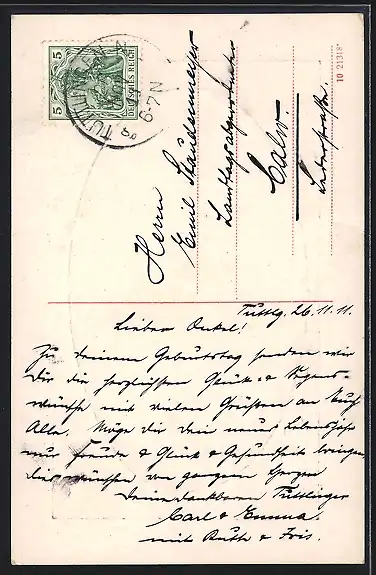 5 DEUTSCHES REICH 5
TUTTLINGEN
6-7N
10 21318*
Herrn
Emil Staudenmeyer
Landtagsabgeordneter
Calw.
Lederstraße
Tuttlg. 26.11.11.
Lieber Onkel!
Zu deinem Geburtstag senden wir
dir die herzlichsten Glück- & Segens-
wünsche mit vielen Grüßen an Euch
Alle. Möge dir dein neues Lebensjahr
nur Freude & Glück & Gesundheit bringen,
dies wünschen von ganzem Herzen
Deine dankbaren Tuttlinger
Carl & Emma.
mit Ruth &